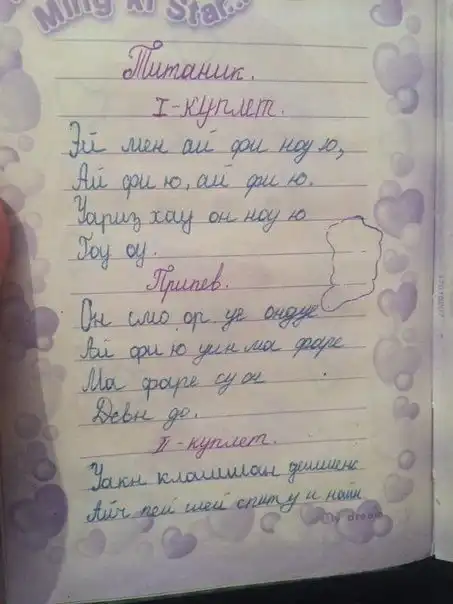 Ming ki Star...
Титаник.
I-куплет.
Эй мен ай фи ноу ю,
Ай фи ю, ай фи ю.
Уариз хау он ноу ю
Гоу оу.
Припев.
Он смо ор уе ондуе
Ай фи ю уин ма фаре
Ма фаре су он
Девн до.
II-куплет.
Уакн клошиман дешиенс
Айч пей шей спит у и найн
My dream